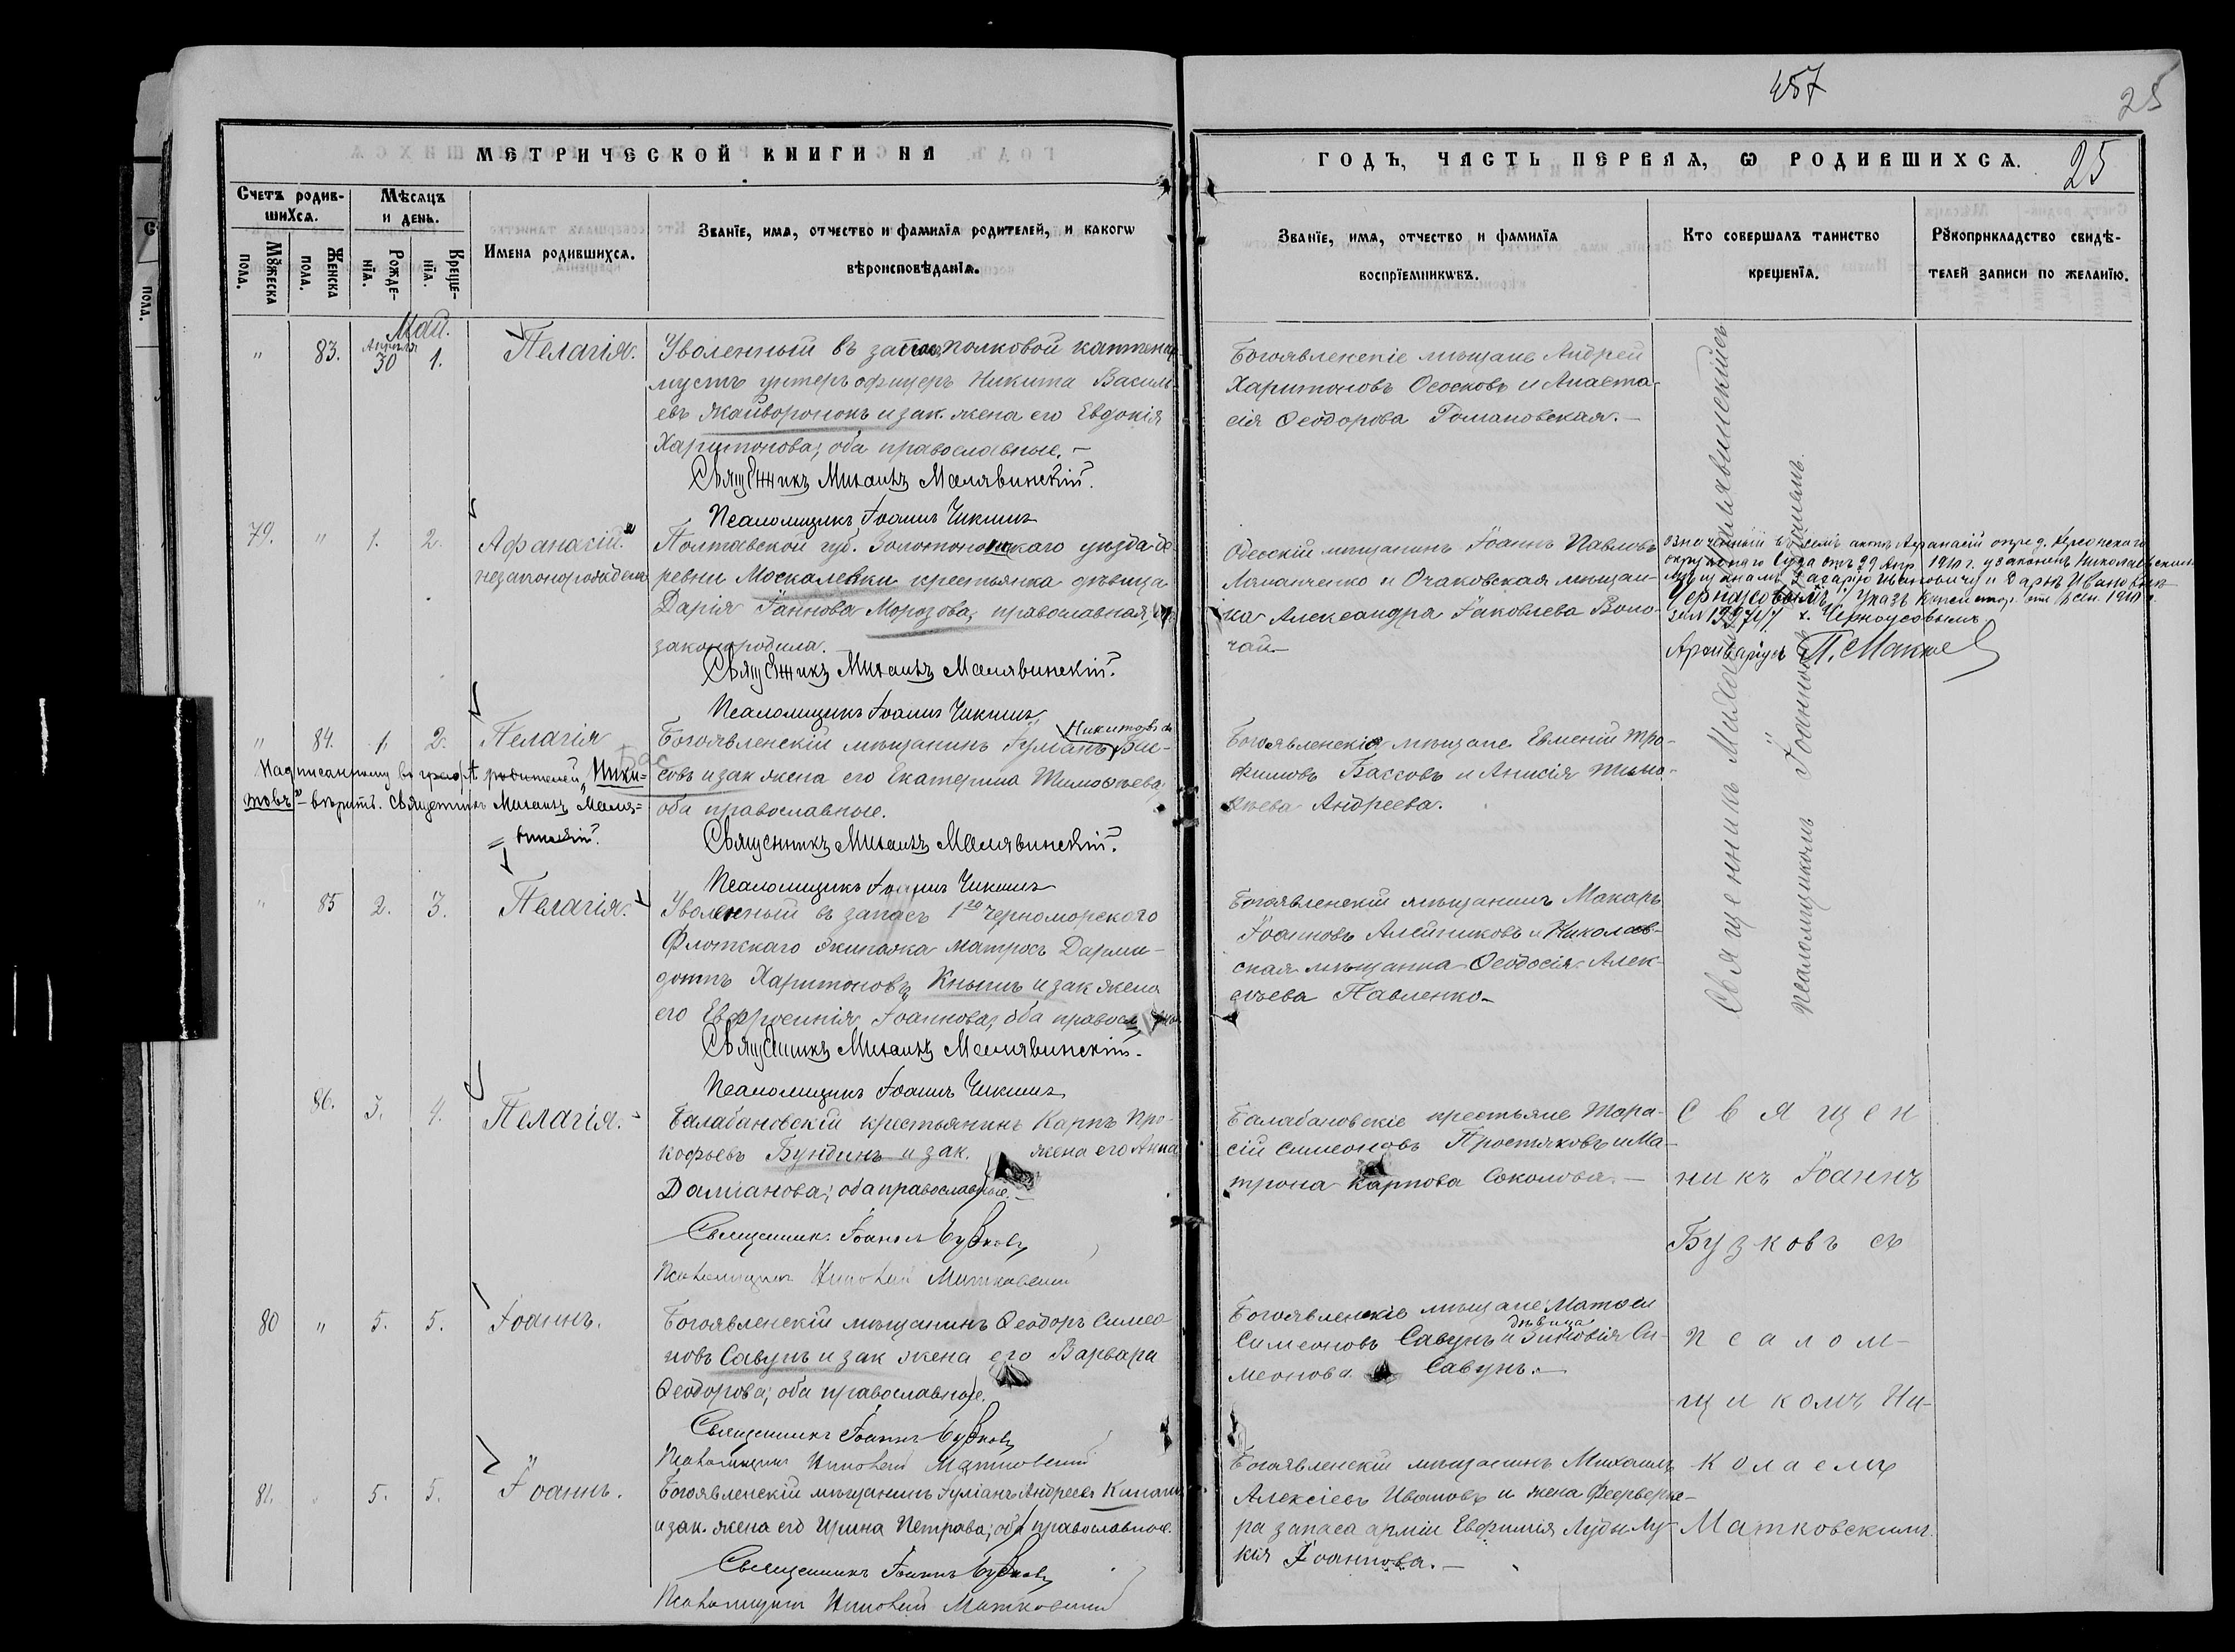 457
25
МЕТРИЧЕСКОЙ КНИГИ НА
ГОДЪ, ЧАСТЬ ПЕРВАЯ, Ѡ РОДИВШИХСѦ.
25
Счетъ родив-
шихсѧ.
Мѣсѧцъ
и день.
Мꙋжеска
пола.
Женска
пола.
Рожде-
нїѧ.
Креще-
нїѧ.
Имена родившихсѧ.
Званїе, имѧ, отчество и фамилїѧ родителей, и какогѡ
вѣроисповѣданїѧ.
Званїе, имѧ, отчество и фамилїѧ
воспрїемникѡвъ.
Кто совершалъ таинство
крещенїѧ.
Рꙋкоприкладство свидѣ-
телей записи по желанїю.
Май.
" 83. Апрѣля 30 1. Пелагія.
Уволенный въ запасъ полковой каптенар-
мусъ унтеръ офицеръ Никита Василь-
евъ Жайворонокъ и зак. жена его Евдокія
Харитонова; оба православные.-
Священникъ Михаилъ Малявинскій.
Псаломщикъ Іоаннъ Чикшинъ
Богоявленскіе мѣщане Андрей
Харитоновъ Ососковъ и Анаста-
сія Ѳеодорова Романовская.-
Священникъ Михаилъ Малявинскій съ
псаломщикомъ Іоанномъ
79. " 1. 2. Аѳанасій.
незаконорожден
Полтавской губ. Золотоношскаго уѣзда де-
ревни Москаленки крестьянка дѣвица
Дарія Іаннова Морозова, православная,
законородила.
Священникъ Михаилъ Малявинскій.
Псаломщикъ Іоаннъ Чикшинъ
Одесскій мѣщанинъ Іоаннъ Павловъ
и Очаковская мѣщан-
ка Александра Іаковлева Воло-
чай-
Означенный въ семъ актѣ Аѳанасій опред. Херсонскаго
окружного Суда отъ 29 Апр. 1910 г. узаконенъ Николаевскимъ
мѣщанамъ Захарію Ивановичу и Дарьѣ Ивановнѣ
Черноусовымъ, Указъ Консистор.
Черноусовымъ
Архиваріусъ П.
" 84. 1. 2. Пелагія
Богоявленскій мѣщанинъ Іуліанъ Никитовъ Бас-
совъ и зак жена его Екатерина Тимоѳеева;
оба православные.
Священникъ Михаилъ Малявинскій.
Псаломщикъ Іоаннъ Чикшинъ
Надписанному въ графѣ родителей „Ники-
товъ" вѣрить. Священникъ Михаилъ Маля-
винскій.
Богоявленскіе мѣщане Евмений Тро-
фимовъ Бассовъ и Анисія Тимо-
ѳеева Андреева.
" 85 2. 3. Пелагія.
Уволенный въ запасъ 1го Черноморскаго
Флотскаго экипажа матросъ Дорми-
донтъ Харитоновъ Кнышъ и зак жена
его Евфросинія Іоаннова; оба правосл.
Священникъ Михаилъ Малявинскій.
Псаломщикъ Іоаннъ Чикшинъ
Богоявленскій мѣщанинъ Макаръ
Іоанновъ Алейниковъ и Николаев-
ская мѣщанка Ѳеодосія Алек-
сѣева Павленко-
86. 3. 4. Пелагія.
Балабановскій крестьянинъ Карпъ Про-
кофьевъ Бундинъ и зак. жена его Анна
Даміанова; оба православные.-
Священникъ Іоаннъ Бузковъ
Псаломщикъ Николай Матковскій
Балабановскіе крестьяне Тара-
сій Симеоновъ Простяковъ и Ма-
трона Карпова Соколова.-
Священ
никъ Іоаннъ
Бузковъ съ
псалом-
щикомъ Ни-
колаемъ
Матковскимъ.
80 " 5. 5. Іоаннъ.
Богоявленскій мѣщанинъ Ѳеодоръ Симео-
новъ Савунъ и зак жена его Варвара
Ѳеодорова; оба православные.
Священникъ Іоаннъ Бузковъ
Псаломщикъ Николай Матковскій
Богоявленскіе мѣщане Матѳей
Симеоновъ Савунъ и дѣвица Зиновія Си-
меонова Савунъ.-
81. " 5. 5. Іоаннъ.
Богоявленскій мѣщанинъ Іуліанъ Андреевъ
и зак. жена его Ирина Петрова; оба православные.
Священникъ Іоаннъ Бузковъ
Псаломщикъ Николай Матковскій
Богоявленскій мѣщанинъ Михаилъ
Алексіевъ Ивановъ и жена Феерверке-
ра запаса арміи Евфимія
Іоаннова.-